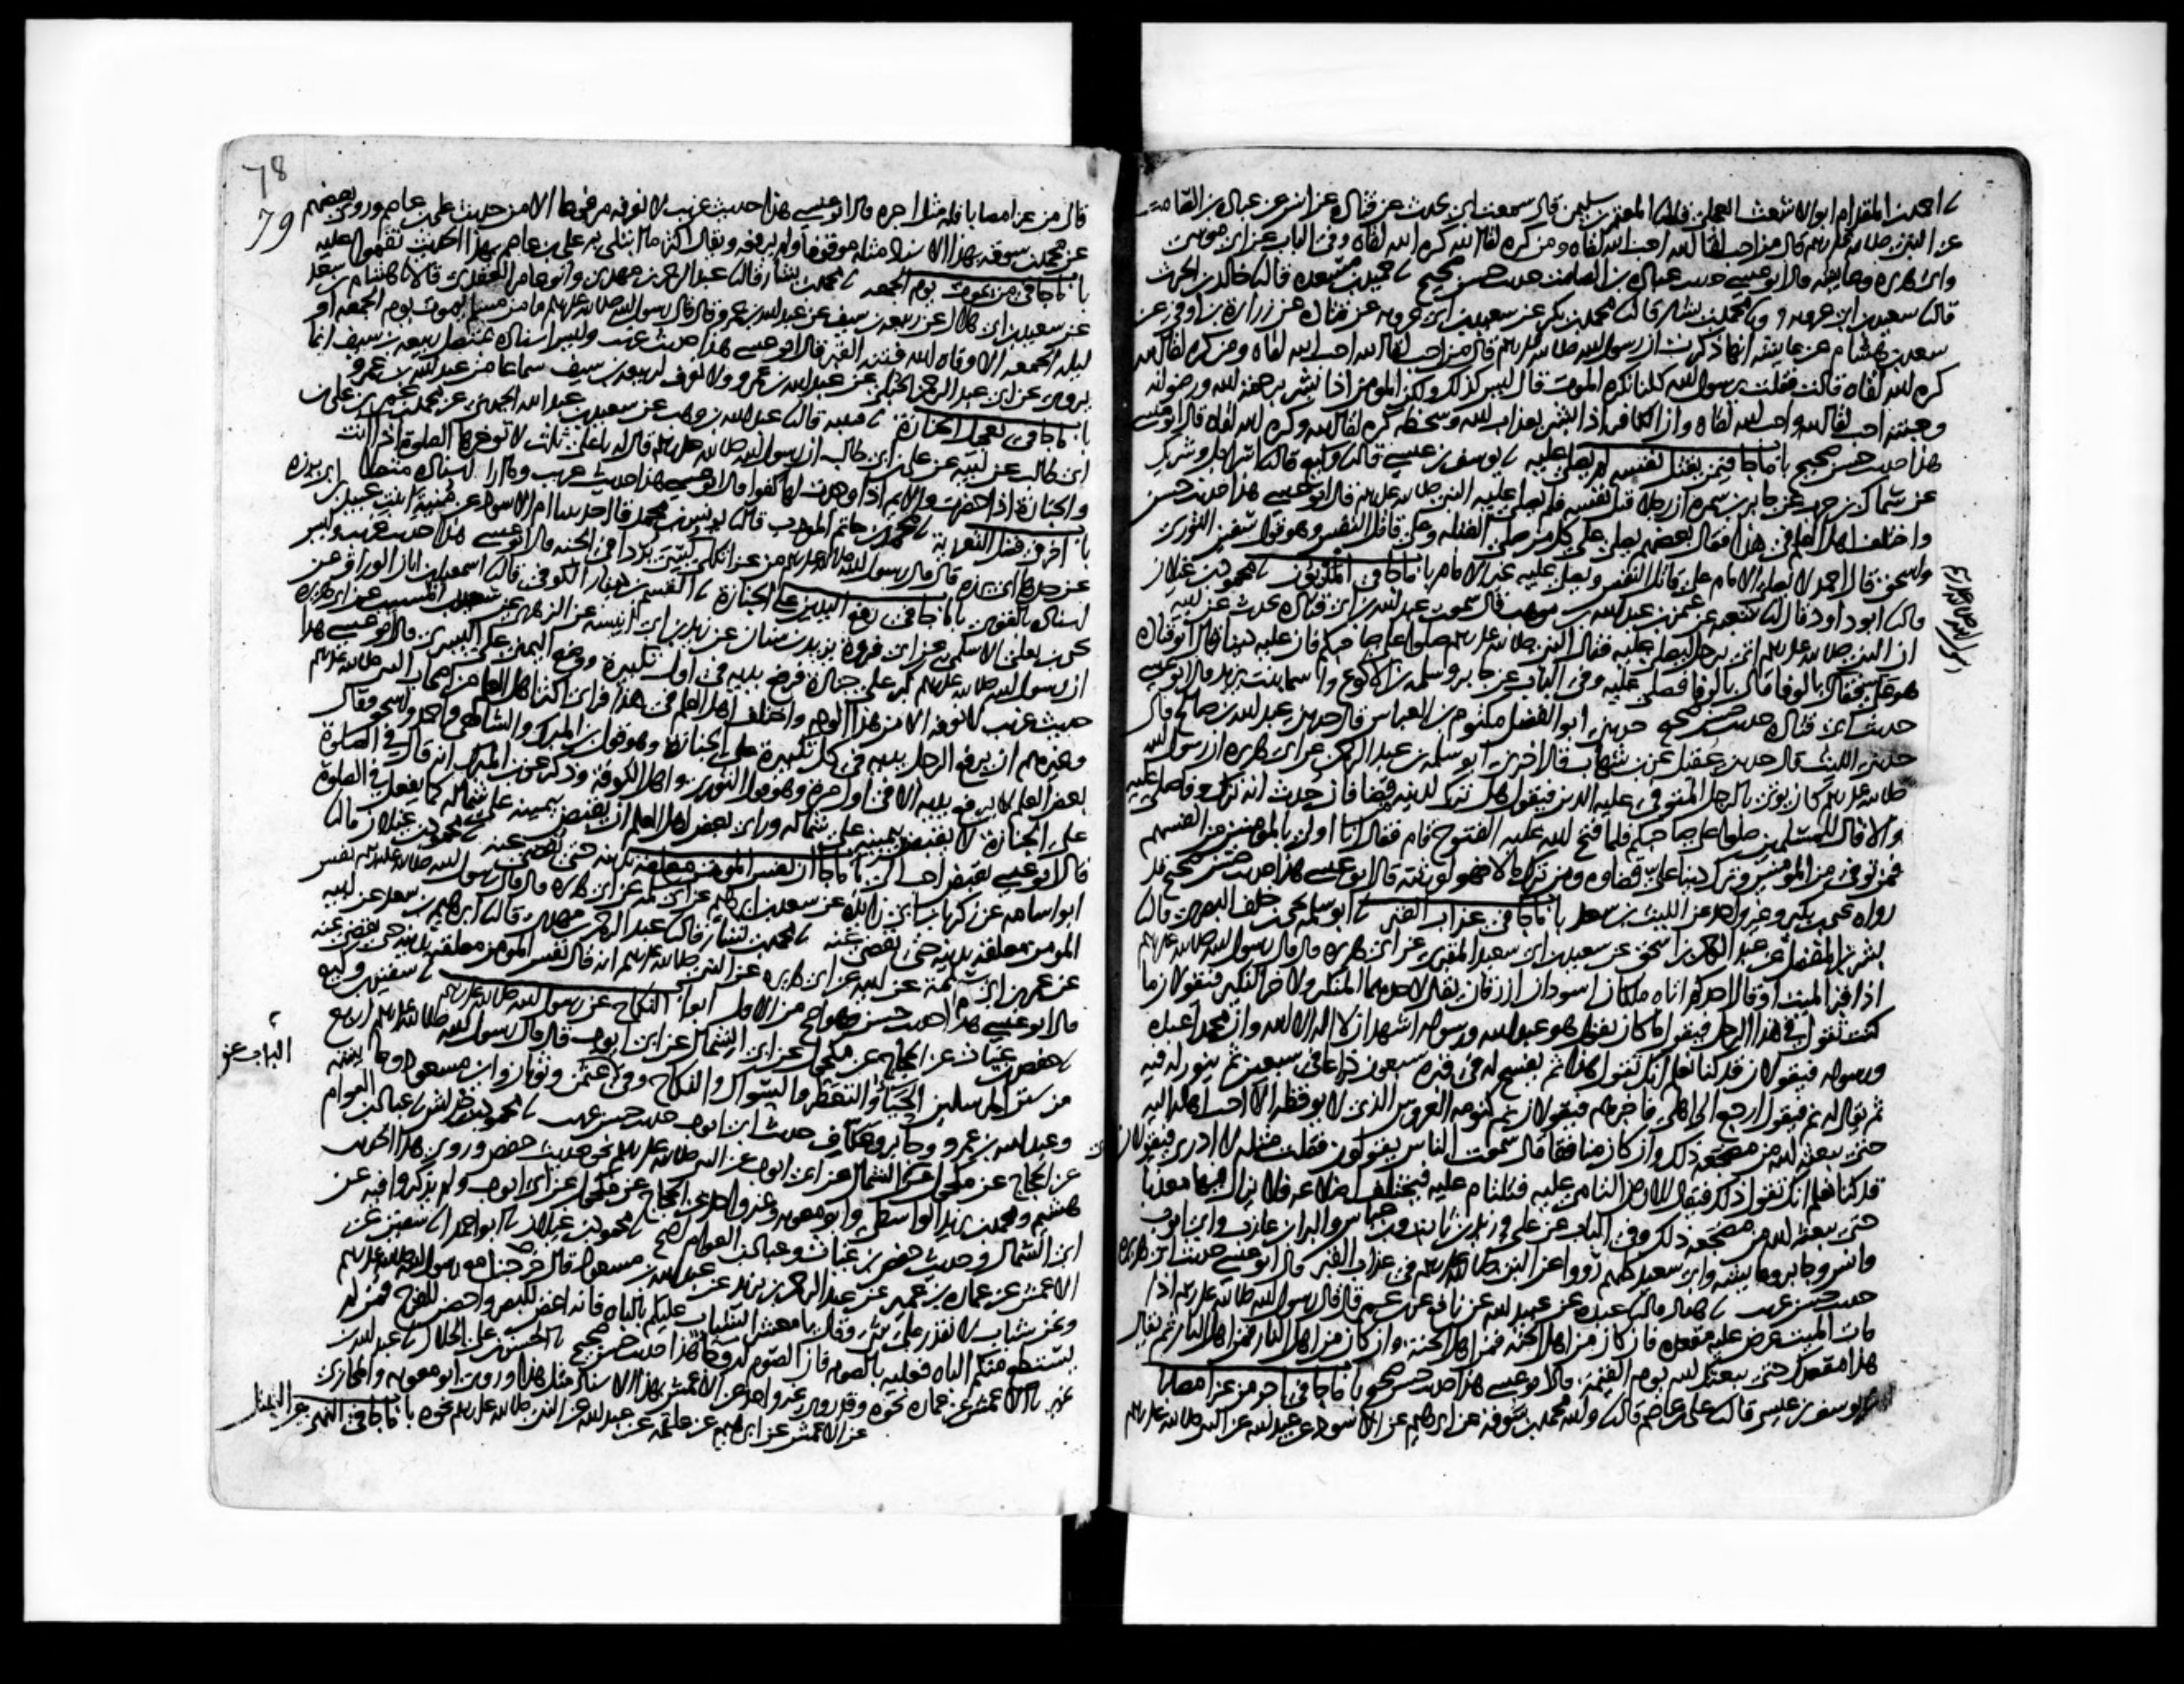 احمد بن المقدام ابو الاشعث العجلي قال نا المعتمر بن سليمن قال سمعت ابي يحدث عن قتادة عن انس عن عبادة بن الصامت
عن النبي صلى الله عليه وسلم قال من احب لقا الله احب الله لقاه ومن كره لقا الله كره الله لقاه وفي الباب عن ابي موسى
وابي هريرة وعايشة قال ابو عيسى حديث عبادة بن الصامت حديث حسن صحيح نا حميد بن مسعدة قال نا خالد بن الحرث
قال نا سعيد بن ابي عروبة ونا محمد بن بشار قال نا محمد بن بكر عن سعيد بن ابي عروبة عن قتادة عن زرارة بن اوفى عن
سعد بن هشام عن عايشة انها ذكرت ان رسول الله صلى الله عليه وسلم قال من احب لقا الله احب الله لقاه ومن كره لقا الله
كره الله لقاه قالت فقلت يرسول الله كلنا نكره الموت قال ليس كذلك ولكن المومن اذا بشر برحمة الله ورضوانه
وجنته احب لقا الله واحب الله لقاه وان الكافر اذا بشر بعذاب الله وسخطه كره لقا الله وكره الله لقاه قال ابو عيسى
هذا حديث حسن صحيح باب ما جا فيمن يقتل نفسه لم يصل عليه نا يوسف بن عيسى قال نا وكيع قال نا اسرايل وشريك
عن سماك بن حرب عن جابر بن سمرة ان رجلا قتل نفسه فلم يصل عليه النبي صلى الله عليه وسلم قال ابو عيسى هذا حديث حسن
واختلف اهل العلم في هذا فقال بعضهم يصلى على كل من صلى للقبلة وعلى قاتل النفس وهو قول سفين الثوري
واسحق قال احمد لا يصلي الامام على قاتل النفس ويصلي عليه غير الامام باب ما جا في المديون نا محمود بن غيلان
قال نا ابو داود قال نا شعبة عن عثمن بن عبد الله بن موهب قال سمعت عبد الله بن ابي قتادة يحدث عن ابيه
ان النبي صلى الله عليه وسلم اتي برجل ليصلي عليه فقال النبي صلى الله عليه وسلم صلوا على صاحبكم فان عليه دينا قال ابو قتادة
هو علي فقال بالوفا قال بالوفا فصلى عليه وفي الباب عن جابر وسلمة بن الاكوع واسما بنت يزيد قال ابو عيسى
حديث ابي قتادة حديث حسن صحيح حدثني ابو الفضل مكتوم بن العباس قال حدثني عبد الله بن صالح قال
حدثني الليث قال حدثني عقيل عن بن شهاب قال اخبرني ابو سلمة بن عبد الرحمن عن ابي هريرة ان رسول الله
صلى الله عليه وسلم كان يوتى بالرجل المتوفى عليه الدين فيقول هل ترك لدينه قضا فان حدث انه ترك وفا صلى عليه
والا قال للمسلمين صلوا على صاحبكم فلما فتح الله عليه الفتوح قام فقال انا اولى بالمومنين من انفسهم
فمن توفي من المومنين وترك دينا علي قضاوه ومن ترك مالا فهو لورثته قال ابو عيسى هذا حديث حسن صحيح قد
رواه يحيى بن بكير وغير واحد عن الليث بن سعد باب ما جا في عذاب القبر نا ابو سلمة يحيى بن خلف البصري قال نا
بشر بن المفضل عن عبد الرحمن بن اسحق عن سعيد بن ابي سعيد المقبري عن ابي هريرة قال قال رسول الله صلى الله عليه وسلم
اذا قبر الميت او قال احدكم اتاه ملكان اسودان ازرقان يقال لاحدهما المنكر والاخر النكير فيقولان ما
كنت تقول في هذا الرجل فيقول ما كان يقول هو عبد الله ورسوله اشهد ان لا اله الا الله وان محمدا عبده
ورسوله فيقولان قد كنا نعلم انك تقول هذا ثم يفسح له في قبره سبعون ذراعا في سبعين ثم ينور له فيه
ثم يقال له نم فيقول ارجع الى اهلي فاخبرهم فيقولان نم كنومة العروس الذي لا يوقظه الا احب اهله اليه
حتى يبعثه الله من مضجعه ذلك وان كان منافقا قال سمعت الناس يقولون فقلت مثله لا ادري فيقولان
قد كنا نعلم انك تقول ذلك فيقال للارض التامي عليه فتلتام عليه فتختلف اضلاعه فلا يزال فيها معذبا
حتى يبعثه الله من مضجعه ذلك وفي الباب عن علي وزيد بن ثابت وبن عباس والبرا بن عازب وابي ايوب
وانس وجابر وعايشة وابي سعيد كلهم رووا عن النبي صلى الله عليه وسلم في عذاب القبر قال ابو عيسى حديث ابي هريرة
حديث حسن غريب نا هناد قال نا عبدة عن عبيد الله عن نافع عن بن عمر قال قال رسول الله صلى الله عليه وسلم اذا
مات الميت عرض عليه مقعده فان كان من اهل الجنة فمن اهل الجنة وان كان من اهل النار فمن اهل النار ثم يقال
هذا مقعدك حتى يبعثك الله يوم القيمة قال ابو عيسى هذا حديث حسن صحيح باب ما جا في اجر من عزا مصابا
نا يوسف بن عيسى قال نا علي بن عاصم قال نا والله محمد بن سوقة عن ابرهيم عن الاسود عن عبد الله عن النبي صلى الله عليه وسلم
78
79
قال من عزا مصابا فله مثل اجره قال ابو عيسى هذا حديث غريب لا نعرفه مرفوعا الا من حديث علي بن عاصم وروى بعضهم
عن محمد بن سوقة بهذا الاسناد مثله موقوفا ولم يرفعه ويقال اكثر ما ابتلي به علي بن عاصم بهذا الحديث نقموا عليه
باب ما جا في من يموت يوم الجمعة نا محمد بن بشار قال نا عبد الرحمن بن مهدي وابو عامر العقدي قالا نا هشام بن سعد
عن سعيد بن ابي هلال عن ربيعة بن سيف عن عبد الله بن عمرو قال قال رسول الله صلى الله عليه وسلم ما من مسلم يموت يوم الجمعة او
ليلة الجمعة الا وقاه الله فتنة القبر قال ابو عيسى هذا حديث غريب وليس اسناده بمتصل ربيعة بن سيف انما
يروي عن ابي عبد الرحمن الحبلي عن عبد الله بن عمرو ولا نعرف لربيعة بن سيف سماعا من عبد الله بن عمرو
باب ما جا في تعجيل الجنازة نا قتيبة قال نا عبد الله بن وهب عن سعيد بن عبد الله الجهني عن محمد بن عمر بن علي بن
ابي طالب عن ابيه عن علي بن ابي طالب ان رسول الله صلى الله عليه وسلم قال له يا علي ثلاث لا توخرها الصلوة اذا اتت
والجنازة اذا حضرت والايم اذا وجدت لها كفوا قال ابو عيسى هذا حديث غريب وما ارى اسناده متصلا
باب اخر في فضل التعزية نا محمد بن حاتم المودب قال نا يونس بن محمد قال حدثتنا ام الاسود عن منية ابنت عبيد بن ابي برزة
عن جدها ابي برزة قال قال رسول الله صلى الله عليه وسلم من عزا ثكلى كسي بردا في الجنة قال ابو عيسى هذا حديث غريب وليس
اسناده بالقوي باب ما جا في رفع اليدين على الجنازة نا القسم بن دينار الكوفي قال نا اسمعيل بن ابان الوراق عن
يحيى بن يعلى الاسلمي عن ابي فروة يزيد بن سنان عن زيد بن ابي انيسة عن الزهري عن سعيد بن المسيب عن ابي هريرة
ان رسول الله صلى الله عليه وسلم كبر على جنازة فرفع يديه في اول تكبيرة ووضع اليمنى على اليسرى قال ابو عيسى هذا
حديث غريب لا نعرفه الا من هذا الوجه واختلف اهل العلم في هذا فراى اكثر اهل العلم من اصحاب النبي صلى الله عليه وسلم
وغيرهم ان يرفع الرجل يديه في كل تكبيرة على الجنازة وهو قول بن المبرك والشافعي واحمد واسحق وقال
بعض اهل العلم لا يرفع يديه الا في اول مرة وهو قول الثوري واهل الكوفة وذكر عن بن المبرك انه قال في الصلوة
على الجنازة لا يقبض بيمينه على شماله وراى بعض اهل العلم ان يقبض بيمينه على شماله كما يفعل في الصلوة
قال ابو عيسى يقبض احب الي باب ما جا ان نفس المومن معلقة بدينه حتى يقضى عنه نا محمود بن غيلان قال نا
ابو اسامة عن زكريا بن ابي زايدة عن سعد بن ابرهيم عن ابي سلمة عن ابي هريرة قال قال رسول الله صلى الله عليه وسلم نفس
المومن معلقة بدينه حتى يقضى عنه نا محمد بن بشار قال نا عبد الرحمن بن مهدي قال نا ابرهيم بن سعد عن ابيه
عن عمر بن ابي سلمة عن ابيه عن ابي هريرة عن النبي صلى الله عليه وسلم انه قال نفس المومن معلقة بدينه حتى يقضى عنه
قال ابو عيسى هذا حديث حسن وهو اصح من الاول ابواب النكاح عن رسول الله صلى الله عليه وسلم نا سفين بن وكيع
نا حفص بن غياث عن الحجاج عن مكحول عن ابي الشمال عن ابي ايوب قال قال رسول الله صلى الله عليه وسلم اربع
من سنن المرسلين الحيا والتعطر والسواك والنكاح وفي الباب عن عثمن وثوبان وابن مسعود وعايشة
وعبد الله بن عمرو وجابر وعكاف حديث ابي ايوب حديث حسن غريب نا محمود بن خداش نا عباد بن العوام
عن الحجاج عن مكحول عن ابي الشمال عن ابي ايوب عن النبي صلى الله عليه وسلم نحو حديث حفص وروى هذا الحديث
هشيم ومحمد بن يزيد الواسطي وابو معوية وغير واحد عن الحجاج عن مكحول عن ابي ايوب ولم يذكروا فيه عن
ابي الشمال وحديث حفص بن غياث وعباد بن العوام اصح نا محمود بن غيلان نا ابو احمد نا سفين عن
الاعمش عن عمارة بن عمير عن عبد الرحمن بن يزيد عن عبد الله بن مسعود قال خرجنا مع رسول الله صلى الله عليه وسلم
ونحن شباب لا نقدر على شي وقال يا معشر الشباب عليكم بالباه فانه اغض للبصر واحصن للفرج فمن لم
يستطع منكم الباه فعليه بالصوم فان الصوم له وجا هذا حديث حسن صحيح نا الحسن بن علي الخلال نا عبد الله بن
نمير نا الاعمش عن عمارة نحوه وقد روى غير واحد عن الاعمش بهذا الاسناد مثل هذا وروى ابو معوية والمحاربي
عن الاعمش عن ابرهيم عن علقمة عن عبد الله عن النبي صلى الله عليه وسلم نحوه باب ما جا في النهي عن التبتل